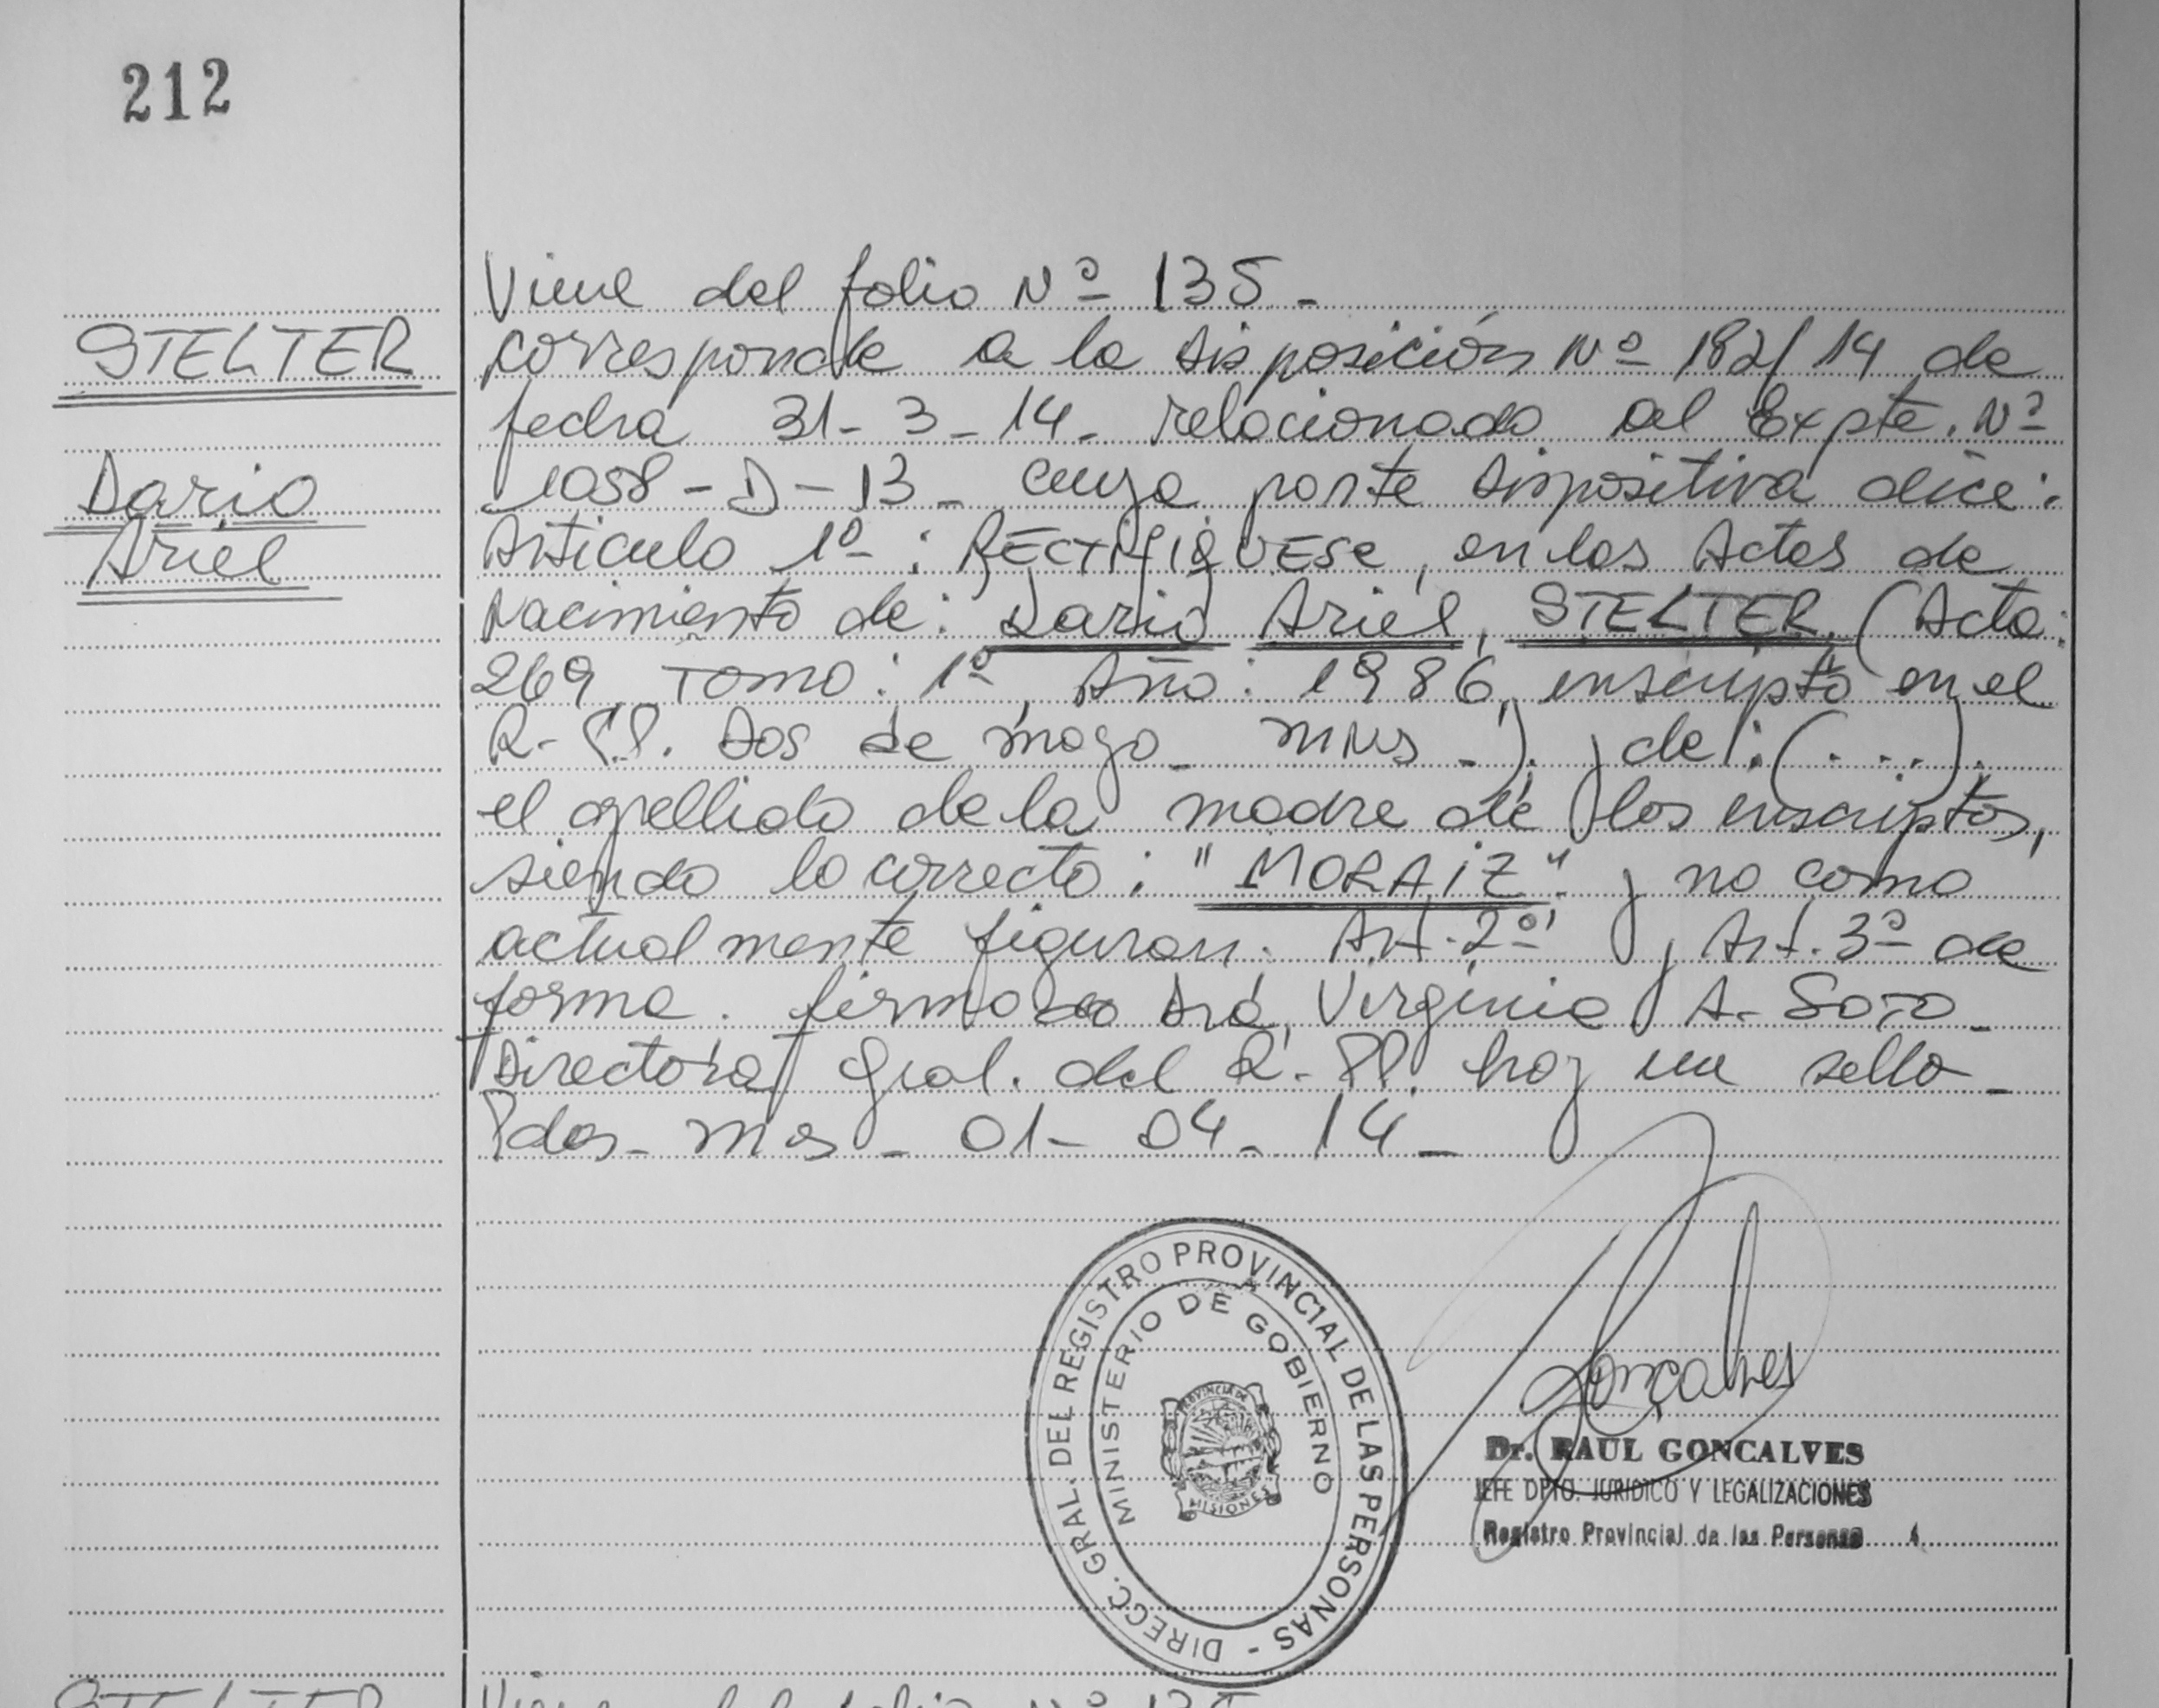 212
Viene del folio Nº 135 -
STELTER
corresponde a la disposición Nº 182/14 de
fecha 31-3-14- relacionado al Expte. Nº
Dario
1058-D-13- cuya parte dispositiva dice:
Ariel
Articulo 1º: RECTIFIQUESE, en las Actas de
Nacimiento de: Dario Ariel, STELTER. (Acta:
269, Tomo: 1º, Año: 1986, inscripto en el
R-PP. Dos de mayo - Mnes -). y de: (....).
el apellido de la madre de los inscriptos,
siendo lo correcto: "MORAIZ" y no como
actualmente figuran. Art. 2º y Art. 3º de
forma. firmado Dra. Virginia A. SOTO -
Directora Gral. del R-PP. hay un sello -
Pdas- Mns - 01-04-14 -
DIRECC. GRAL. DEL REGISTRO PROVINCIAL DE LAS PERSONAS -
MINISTERIO DE GOBIERNO
PROVINCIA DE
MISIONES
Goncalves
Dr. RAUL GONCALVES
JEFE DPTO. JURIDICO Y LEGALIZACIONES
Registro Provincial de las Personas
STELTER
Viene del folio Nº 135